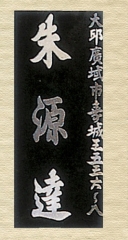 大邱廣域市壽城三五三六~八
朱源達